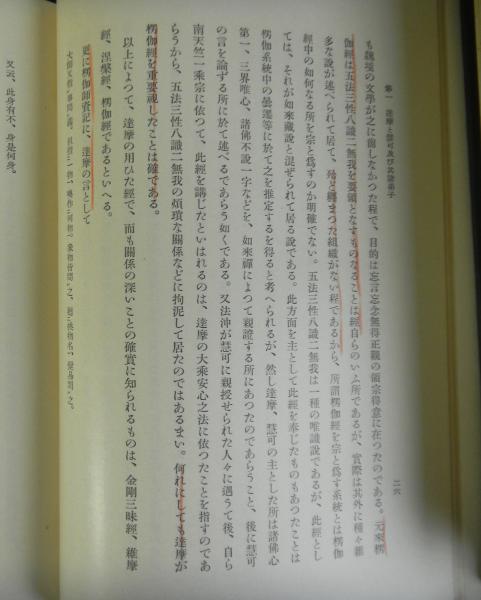 第一　達摩と慧可及び其諸弟子
二六
も魏譯の文學が之に翻しなかつた程で、目的は忘言忘念無得正觀の領宗得意に在つたのである。元來楞
伽經は五法三性八識二無我を要領となすものなることは經自らのいふ所であるが、實際は其外に種々雜
多な說が述べられて居て、殆ど纏まつた組織がない程であるから、所謂楞伽經を宗と爲す系統とは楞伽
經中の如何なる所を宗と爲すのか明確でない。五法三性八識二無我は一種の唯識說であるが、此經とし
ては、それが如來藏說と混ぜられて居る說である。此方面を主として此經を奉じたものもあつたことは
楞伽系統中の曇遷等に於て之を推定するを得ると考へられるが、然し達摩、慧可の主とした所は諸佛心
第一、三界唯心、諸佛不說一字などを、如來禪によつて親證する所にあつたのであらうこと、後に慧可
の言を論ずる所に於て述べるであらう如くである。又法沖が慧可に親授せられた人々に遇うて後、自ら
南天竺一乘宗に依つて、此經を講じたといはれるのは、達摩の大乘安心之法に依つたことを指すのであ
らうから、五法三性八識二無我の煩瑣な關係などに拘泥して居たのではあるまい。何れにしても達摩が
楞伽經を重要視したことは確である。
以上によつて、達摩の用ひた經で、而も關係の深いことの確實に知られるものは、金剛三昧經、維摩
經、涅槃經、楞伽經であるといへる。
更に楞伽師資記に、達摩の言として
又云、此身有不、身是何身。